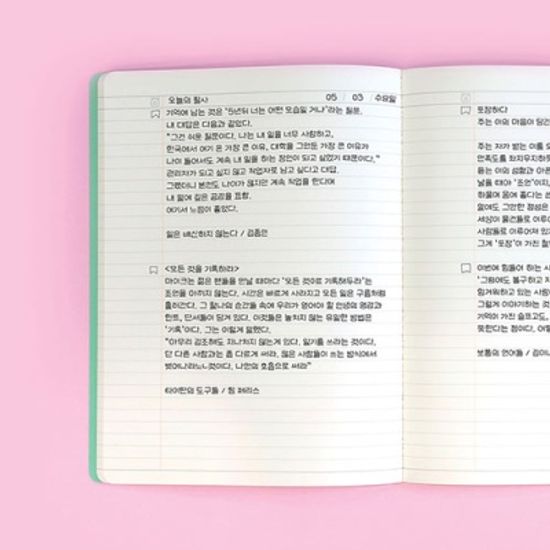 오늘의 필사 05 / 03 / 수요일
기억에 남는 것은 "5년뒤 너는 어떤 모습일 거냐"라는 질문.
내 대답은 다음과 같았다.
"그건 쉬운 질문이다. 나는 내 일을 너무 사랑하고,
한국에서 여기 온 가장 큰 이유, 대학을 그만둔 가장 큰 이유가
나이 들어서도 계속 내 일을 하는 장인이 되고 싶었기 때문이다."
관리자가 되고 싶지 않고 작업자로 남고 싶다고 대답.
그랬더니 본인도 나이가 많지만 계속 작업을 한다며
내 말에 깊은 공감을 표함.
여기서 느낌이 좋았다.
일은 배신하지 않는다 / 김종민
<모든 것을 기록하라>
마이크는 젊은 팬들을 만날 때마다 "모든 것이든 기록해두라"는
조언을 아끼지 않는다. 시간은 빠르게 사라지고 모든 일은 구름처럼
흘러간다. 그 찰나의 순간들 속에 우리가 얻어야 할 인생의 영감과
힌트, 단서들이 담겨 있다. 이것들은 놓치지 않는 유일한 방법은
'기록'이다. 그는 이렇게 말했다.
"아무리 강조해도 지나치지 않는게 있다. 일기를 쓰라는 것이다.
단 다른 사람과는 좀 다르게 써라. 많은 사람들이 쓰는 방식에서
벗어나라는 것이다. 나만의 호흡으로 써라"
타이탄의 도구들 / 팀 페리스
포장하다
주는 이의 마음이 담긴
주는 자가 받는 이를 오
만족도를 좌지우지하듯
듣는 이의 성향과 아픈
날을 때야 '조언'이지,
하물며 몸에 좋다는 쓴
말에도 그만한 정성은
세상이 물건들로 이루어
사람들로 이루어져 있기
그게 '포장'이 가진
이번에 힘들어 하는 사
"그럼에도 불구하고
힘겨워하고 있는 사람
그렇게 이야기하는 것
기억이 가진 슬프고도,
못한다는 점이다. 어
보통의 언어들 / 김이나